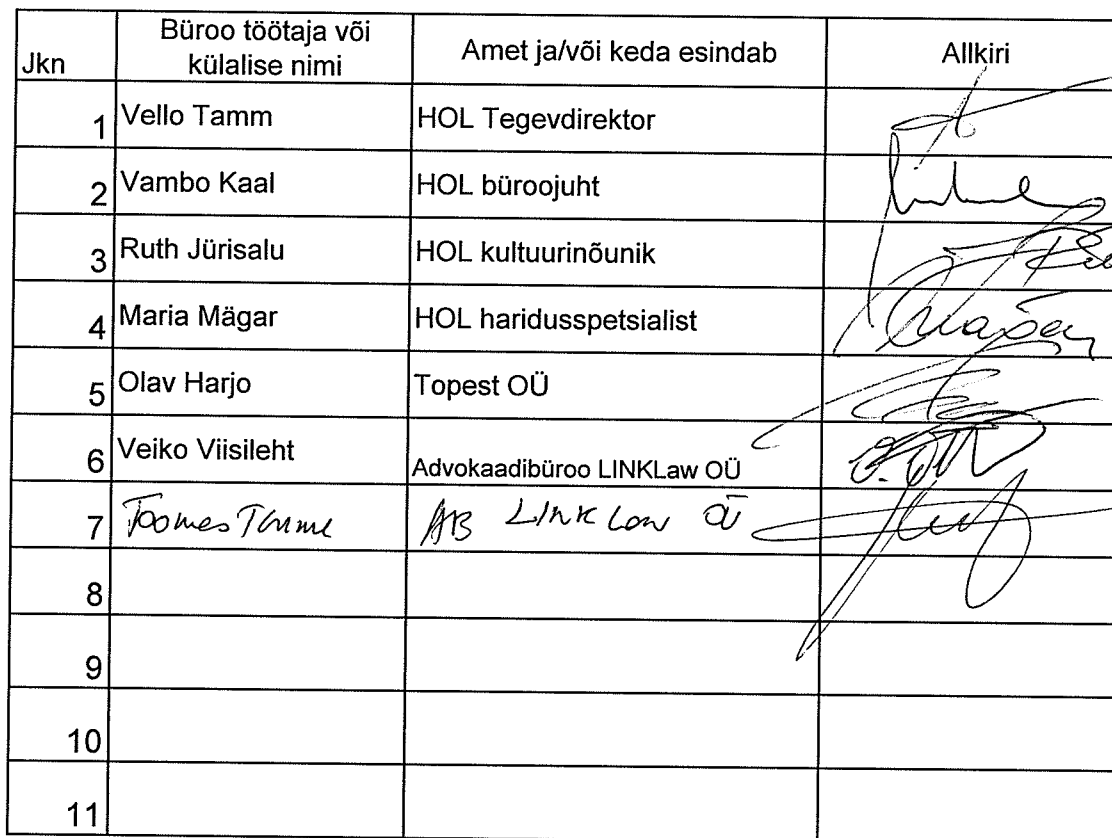 Jkn Büroo töötaja või külalise nimi Amet ja/või keda esindab Allkiri
1 Vello Tamm HOL Tegevdirektor
2 Vambo Kaal HOL büroojuht
3 Ruth Jürisalu HOL kultuurinõunik
4 Maria Mägar HOL haridusspetsialist
5 Olav Harjo Topest OÜ
6 Veiko Viisileht Advokaadibüroo LINKLaw OÜ
7 AB LINK Law OÜ
8
9
10
11